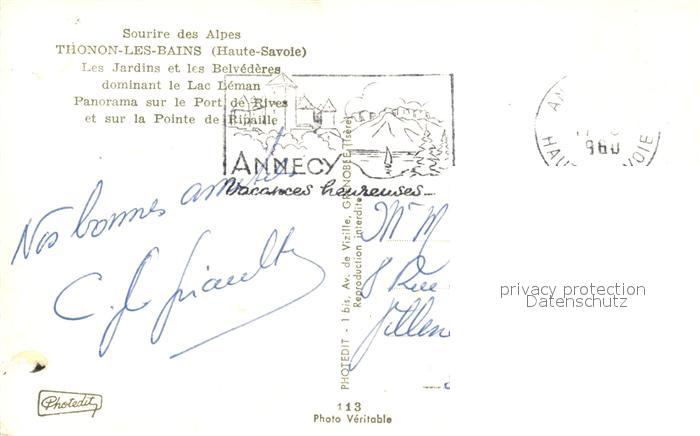 Sourire des Alpes
THONON-LES-BAINS (Haute-Savoie)
Les Jardins et les Belvédères
dominant le Lac Léman
Panorama sur le Port de Rives
et sur la Pointe de Ripaille
ANNECY
Vacances heureuses...
AN
HAU VOIE
960
Nos bonnes amitiés
C.
Mr M
8 Rue
Villen
PHOTEDIT - 1 bis, Av. de Vizille, GRENOBLE (Isère)
Reproduction interdite
privacy protection
Datenschutz
Photedit
113
Photo Véritable